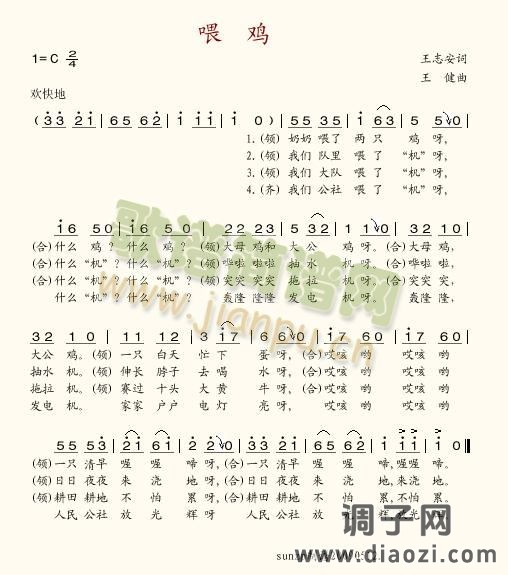 喂 鸡
1=C 2/4
王志安词
王 健曲
欢快地
( 33 21 | 65 62 | 1 11 | 1 0 ) | 55 35 | 1 63 | 5 50 |
1. (领) 奶奶 喂了 两 只 鸡 呀,
2. (领) 我们 队里 喂 了 “机” 呀,
3. (领) 我们 大队 喂 了 “机” 呀,
4. (齐) 我们 公社 喂 了 “机” 呀,
16 50 | 16 50 | 22 23 | 2 32 | 1 10 | 32 10 |
(合) 什么 鸡? 什么 鸡? (领) 大母 鸡和 大 公 鸡 呀。 (合) 大母 鸡,
(合) 什么 “机”? 什么 “机”? (领) 哗啦 啦啦 抽 水 机 呀。 (合) 哗啦 啦,
(合) 什么 “机”? 什么 “机”? (领) 突突 突突 拖 拉 机 呀。 (合) 突突 突,
什么 “机”? 什么 “机”? 轰隆 隆隆 发 电 机 呀。 轰隆 隆,
32 10 | 11 12 | 3 12 | 6 60 | 17 60 | 17 60 |
大公 鸡。 (领) 一只 白天 忙 下 蛋 呀, (合) 哎咳 哟 哎咳 哟
抽水 机。 (领) 伸长 脖子 去 喝 水 呀, (合) 哎咳 哟 哎咳 哟
拖拉 机。 (领) 赛过 十头 大 黄 牛 呀, (合) 哎咳 哟 哎咳 哟
发电 机。 家家 户户 电 灯 亮 呀, 哎咳 哟 哎咳 哟
55 53 | 21 61 | 2 20 | 21 65 | 62 1 | 11 | 1 0 ‖
(领) 一只 清早 喔 喔 啼 呀, (合) 一只 清早 喔喔 啼, 喔喔 啼。
(领) 日日 夜夜 来 浇 地 呀, (合) 日日 夜夜 来浇 地, 来浇 地。
(领) 耕田 耕地 不 怕 累 呀, (合) 耕田 耕地 不怕 累, 不怕 累。
人民 公社 放 光 辉 呀, 人民
歌谱简谱网
www.jianpu.cn
调子网
www.diaozi.com